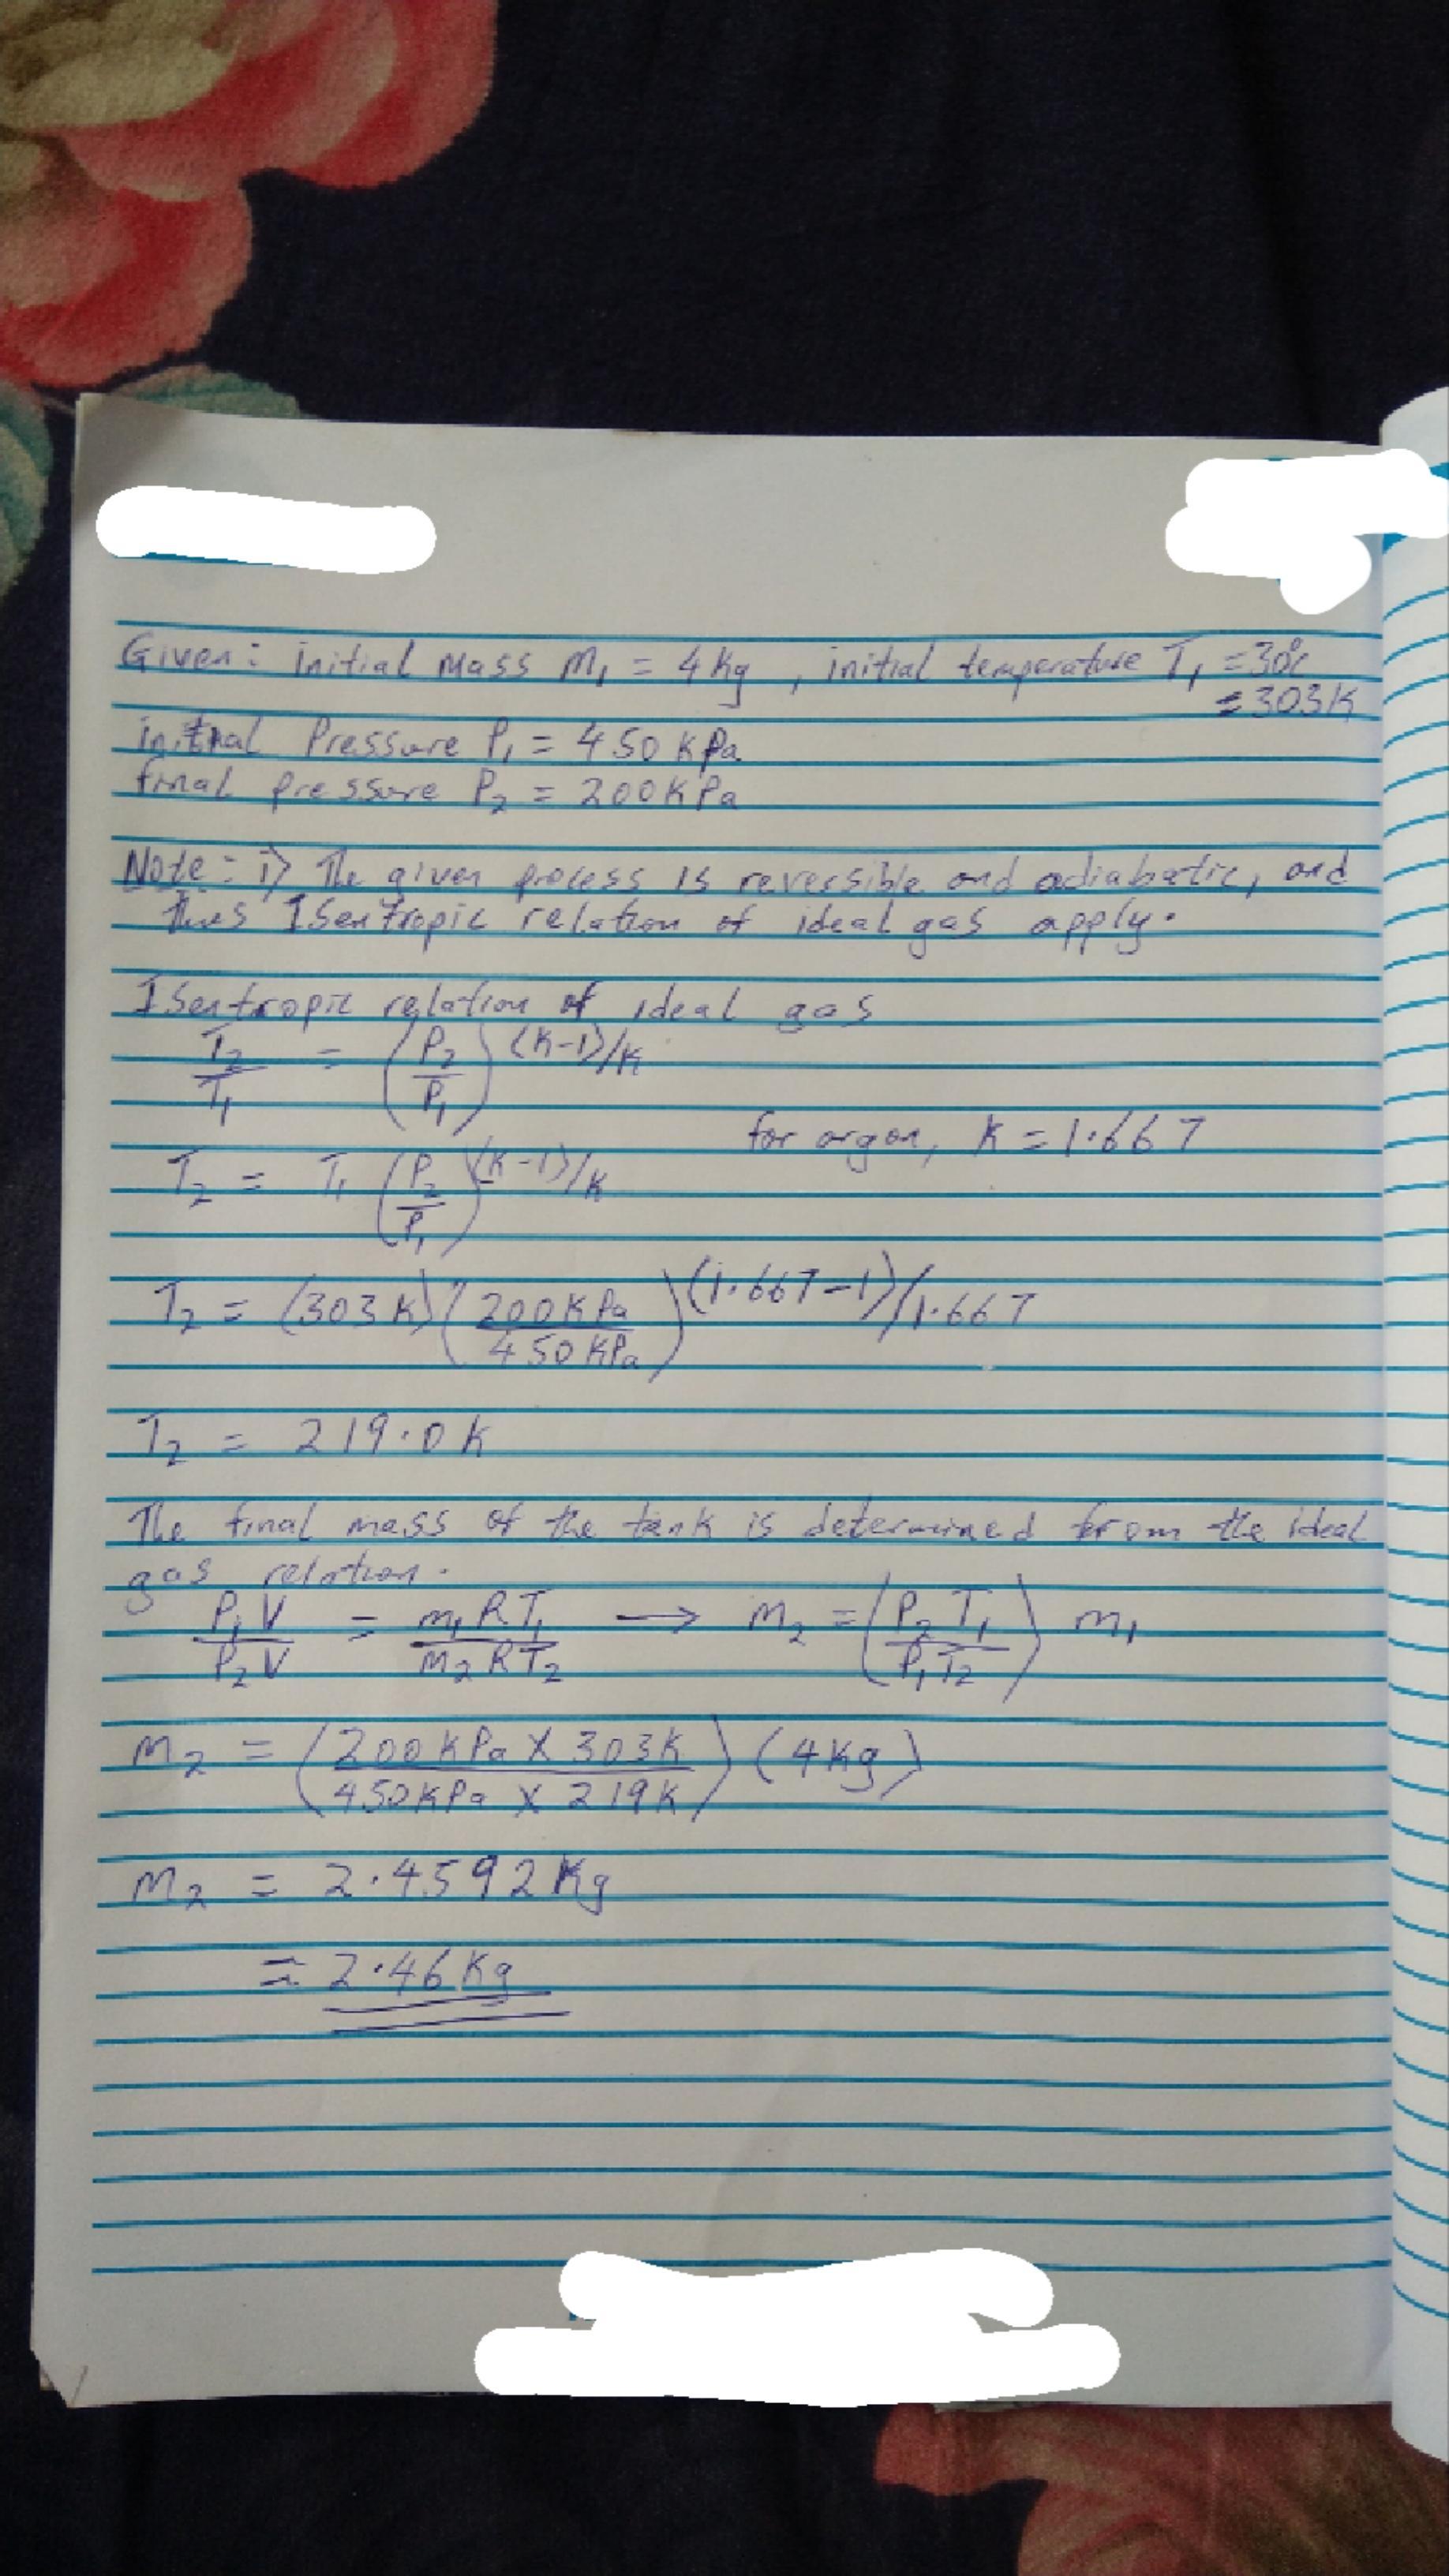 Given: initial mass m₁ = 4 kg , initial temperature T₁ = 30°c
= 303K
initial Pressure P₁ = 450 KPa
final pressure P₂ = 200KPa
Note: i) The given process is reversible and adiabatic, and
thus Isentropic relation of ideal gas apply.
Isentropic relation of ideal gas
T₂/T₁ = (P₂/P₁)^(K-1)/K
for argon, K = 1.667
T₂ = T₁ (P₂/P₁)^(K-1)/K
T₂ = (303K) (200KPa/450KPa)^(1.667-1)/1.667
T₂ = 219.0K
The final mass of the tank is determined from the ideal
gas relation.
P₁V/P₂V = m₁RT₁/m₂RT₂ → m₂ = (P₂T₁/P₁T₂) m₁
m₂ = (200KPa X 303K/450KPa X 219K) (4Kg)
m₂ = 2.4592Kg
≈ 2.46Kg